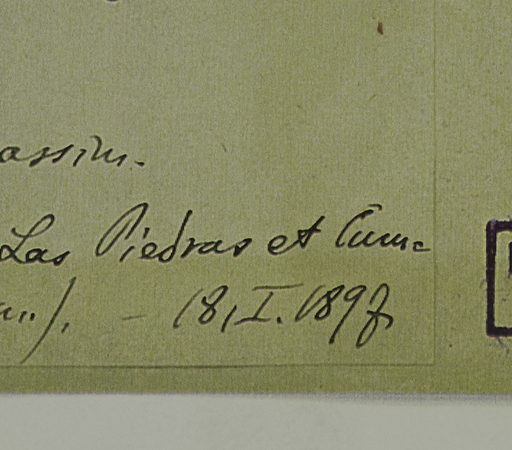 assim.
Las Piedras et Cum=
). – 18, I. 1897